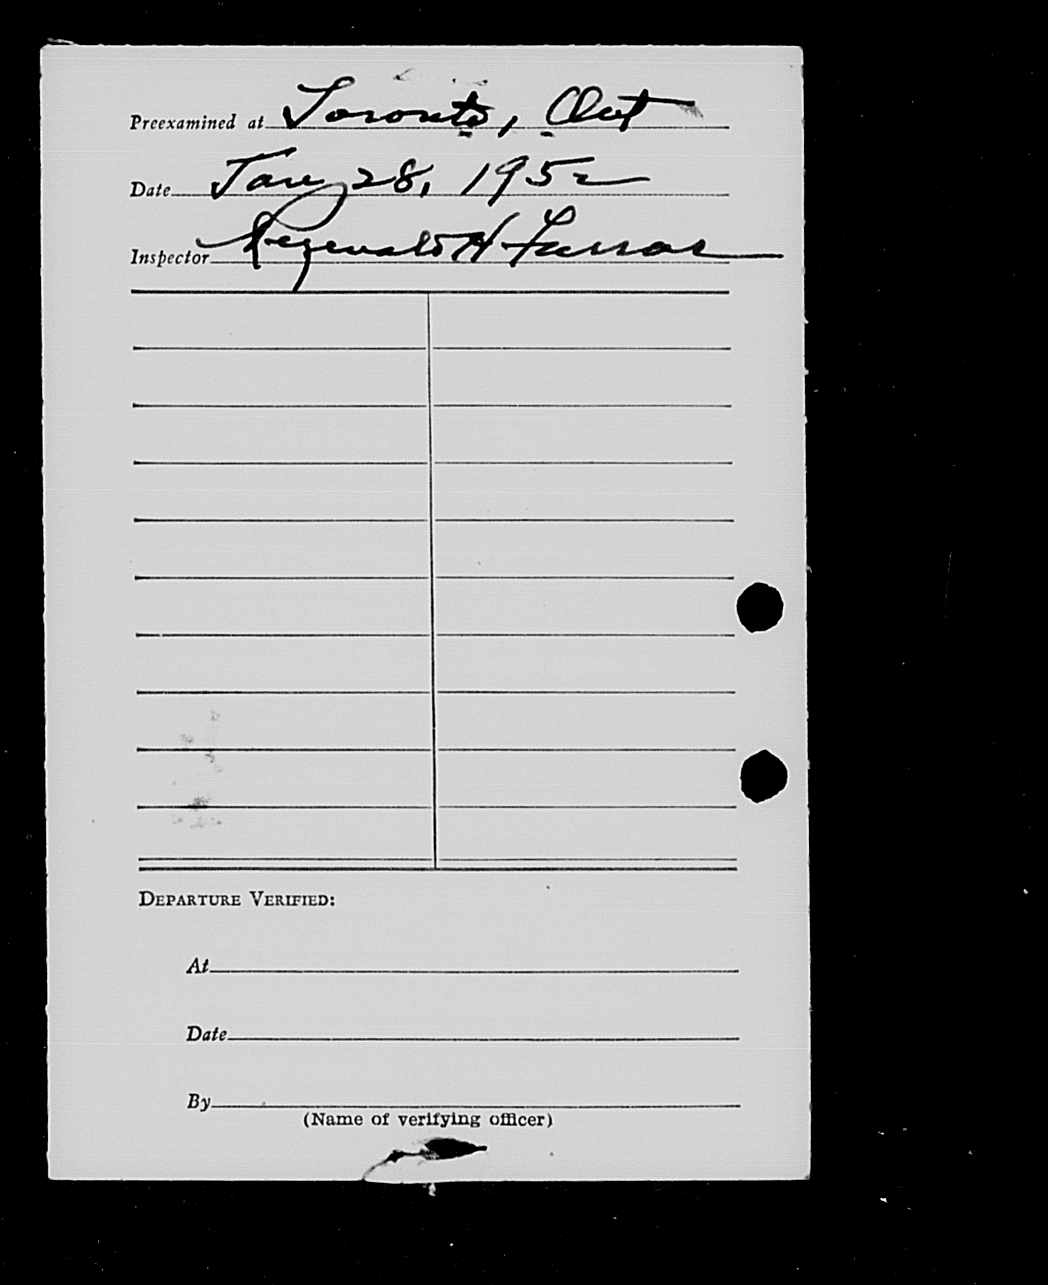 Preexamined at Toronto, Ont
Date Jany 28, 1952
Inspector Reginald H Farrar
DEPARTURE VERIFIED:
At
Date
By
(Name of verifying officer)